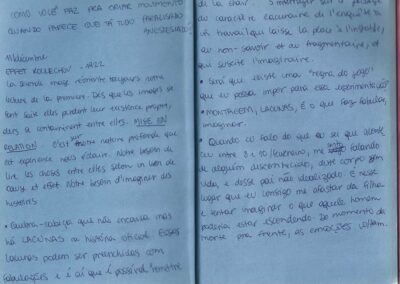 COMO VOCÊ FAZ PRA CRIAR MOVIMENTO
QUANDO PARECE QUE TÁ TUDO PARALISADO
ANESTESIADO?
EFFET KOULECHOV - 1922
La seconde image réoriente toujours notre
lecture de la première. Dès que les images se
font suite elles perdent leur existence propre,
elles se contaminent entre elles. MISE EN
RELATION - C'est notre nature profonde que
cet expérience nous éclaire. Notre besoin de
lire les choses entre elles selon un lien de
cause et effet. Notre besoin d'imaginer des
histoires.
• Quebra-cabeça que não encaixa mas
há LACUNAS na história oficial. Essas
lacunas podem ser preenchidas com
fabulações e é aí que é possível "remettre
de la chair". S'interroger sur le
du caractère lacunaire de l'enquête
un travail qui laisse la place à l'instable,
au non-savoir et au fragmentaire, et
qui suscite l'imaginaire.
• Será que existe uma "regra do jogo"
que eu possa impor para essa experimentação
• MONTAGEM, LACUNAS, É O QUE FAZ fabular,
imaginar.
• Quando eu falo do que eu sei que aconte
ceu entre 8 e 10/fevereiro, me falando
de alguém desconhecido, outro corpo sem
vida, e desse pai não idealizado. É nesse
lugar que eu consigo me afastar da filha
e tentar imaginar o que aquele homem
poderia estar escondendo. Do momento da
morte pra frente, as emoções voltam.